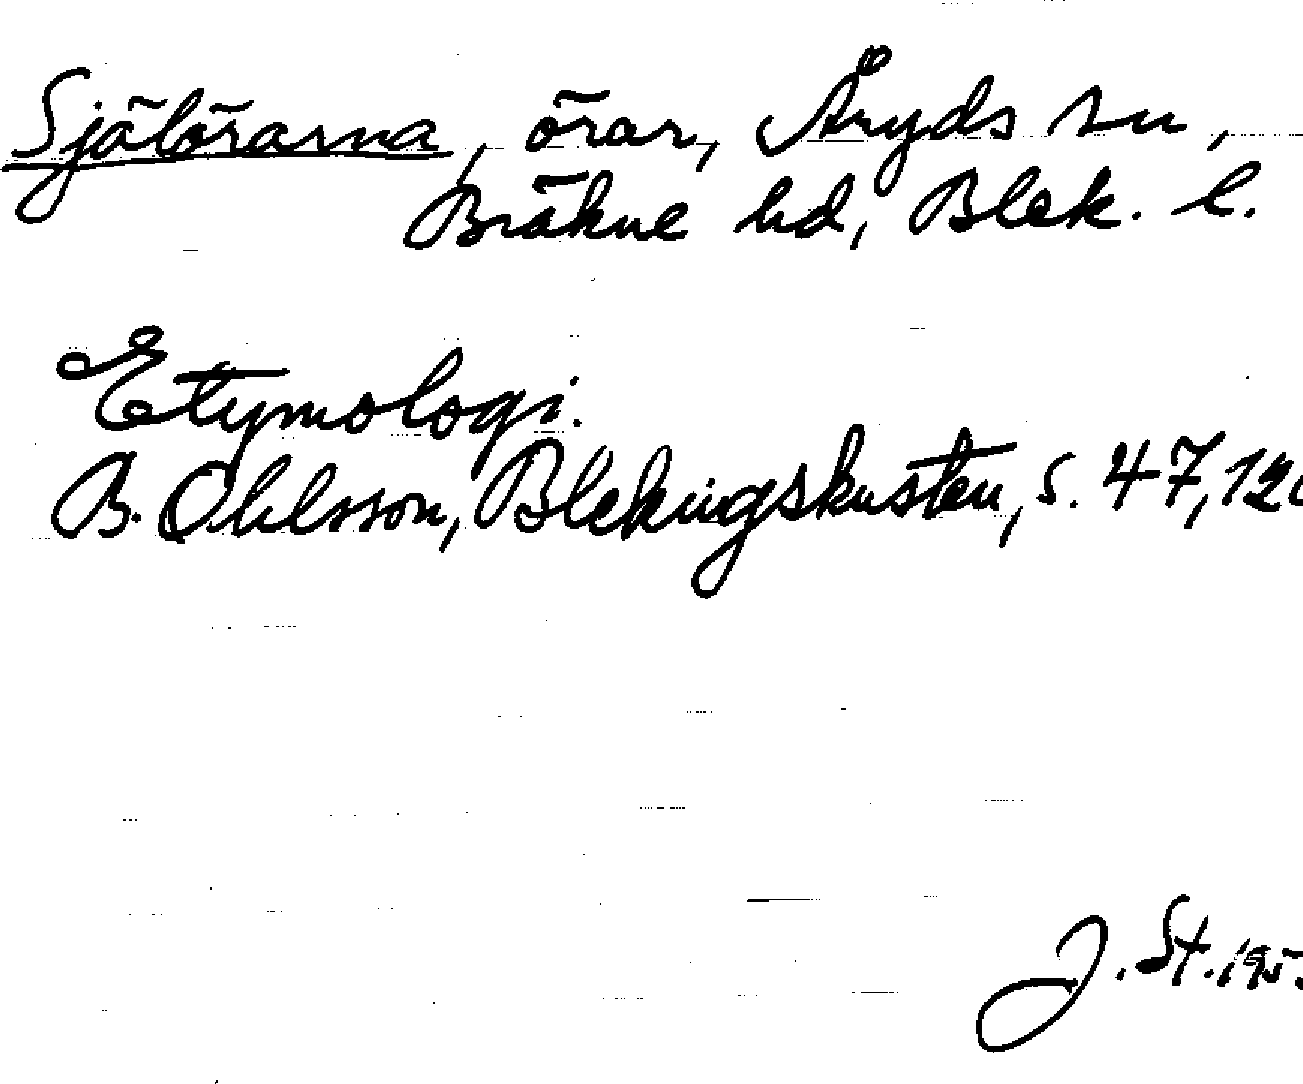 Själörarna, örar, Åryds sn,
Bräkne hd, Blek. l.
Etymologi.
B. Ohlsson, Blekingskusten, s. 47, 12
J. St. 195